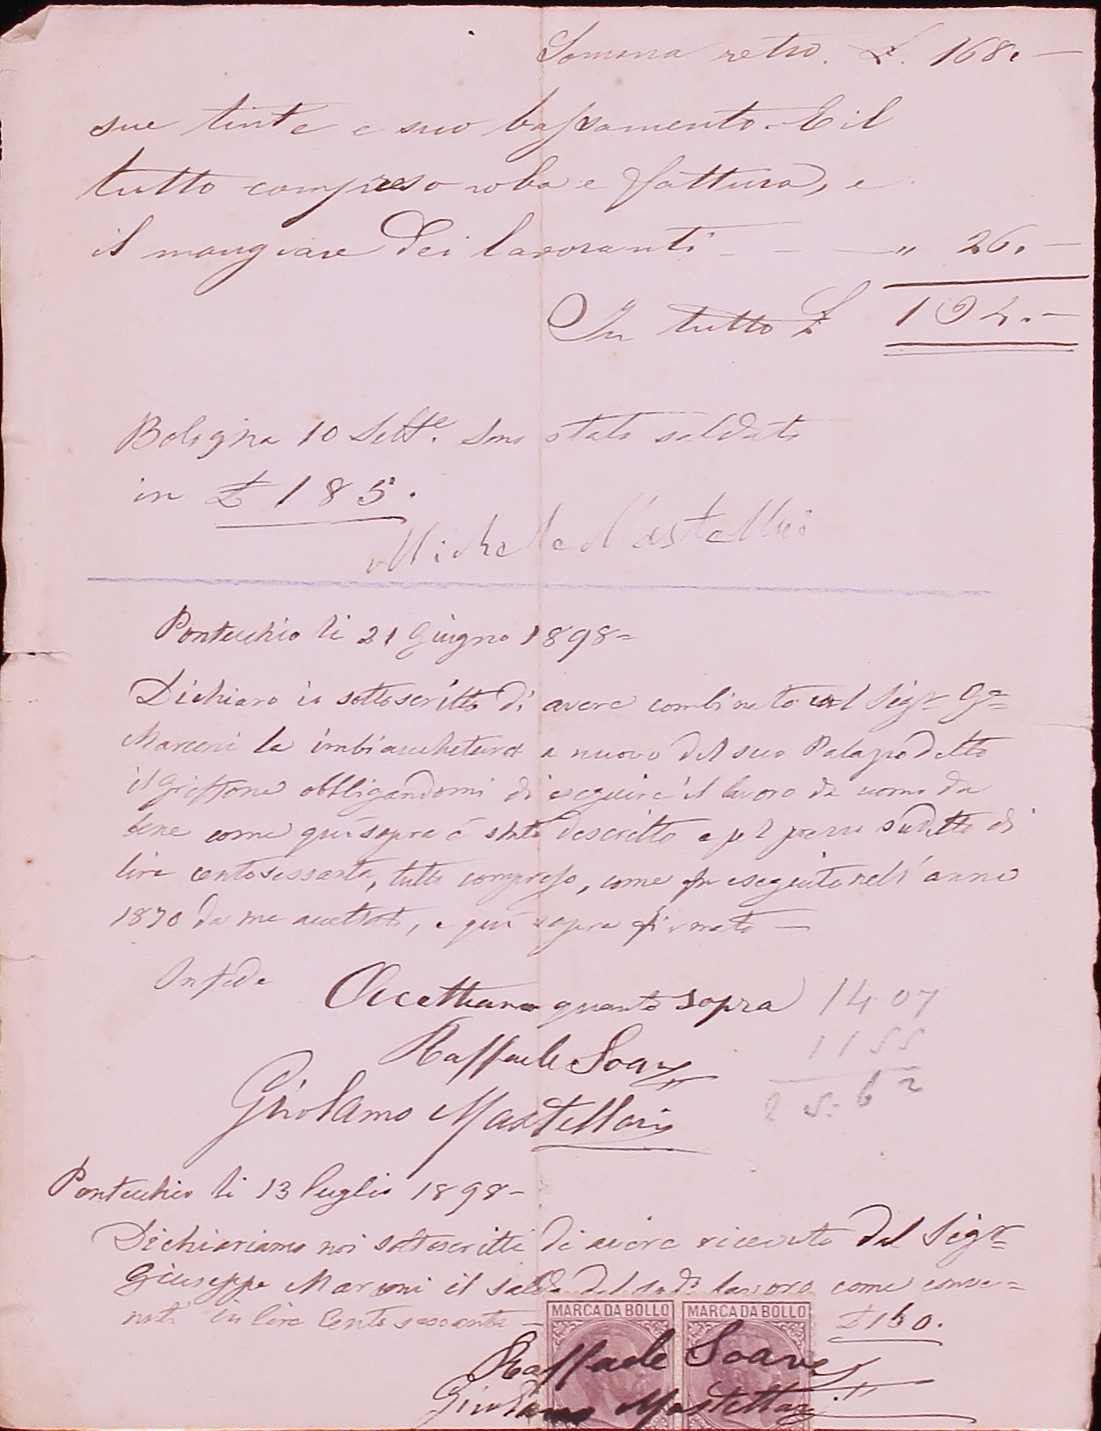 Somma retro. £. 168. —
sue tinte e suo bassamento. E il
tutto compreso roba e fattura, e
il mangiare dei lavoranti - - — " 26. —
In tutto £ 194. —
Bologna 10 Sette. sono stato saldato
in £ 185.
Michele Mastellari
Pontecchio li 21 Giugno 1898=
Dichiaro io sottoscritto di avere combinato col Sigr. Gе=
Marconi la imbiancatura a nuovo del suo Palazzo detto
il Griffone obbligandomi di eseguire il lavoro da uomo da
bene come quì sopra è stato descritto e pel prezzo sudetto di
lire centosessanta, tutto compreso, come fu eseguito nell'anno
1870 da me accettato, e quì sopra firmato —
In fede
Accettiamo quanto sopra
1407
1155
2562
Raffaele Soavi
Girolamo Mastellari
Pontecchio li 13 luglio 1898-
Dichiariamo noi sottoscritti di avere ricevuto dal Sigr=
Giuseppe Marconi il saldo del sudo. lavoro come conve=
nuti in lire cento sessanta — £ 160.
MARCA DA BOLLO MARCA DA BOLLO
Raffaele Soavi
Girolamo Mastellari